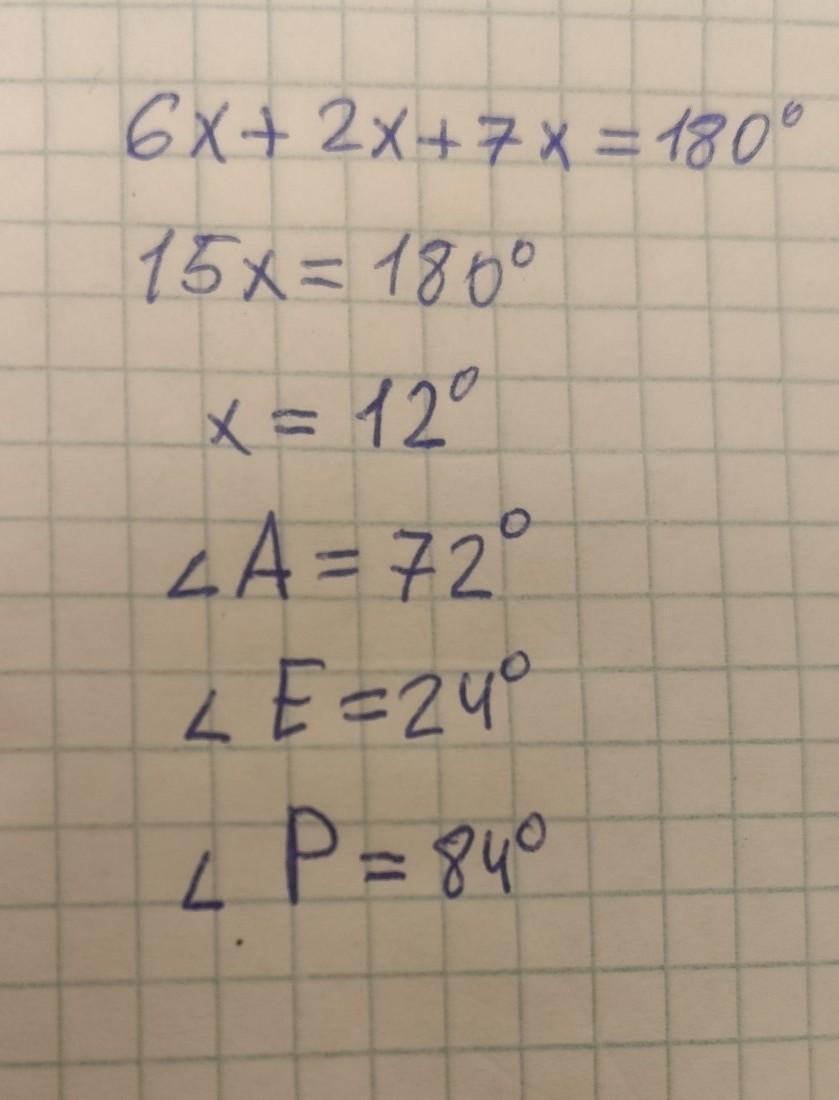 6x + 2x + 7x = 180°
15x = 180°
x = 12°
∠A = 72°
∠E = 24°
∠P = 84°